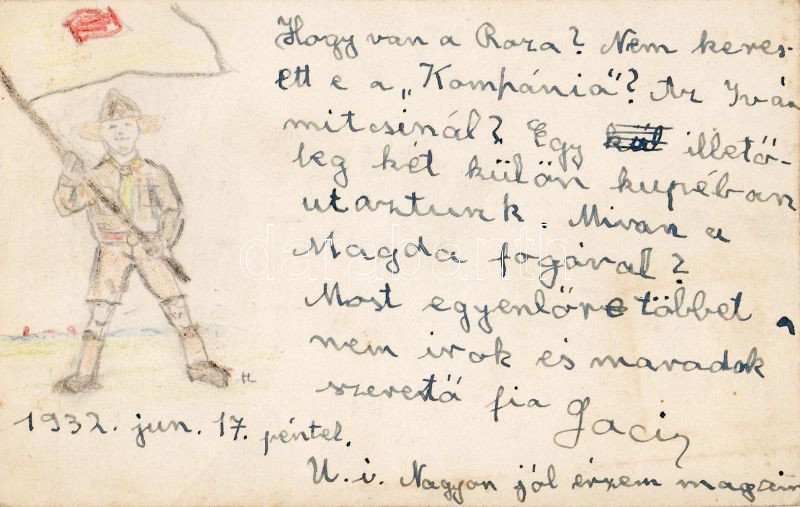 Hogy van a Roza? Nem keres-
ett e a „Kompánia"? Az Iván
mitcsinál? Egy illető-
leg két külön kupéban
utaztunk. Mivan a
Magda fogával?
Most egyenlőre többet
nem irok és maradok
szerető fia Laciz
1932. jun. 17. péntek.
U. i. Nagyon jól érzem magam
darabanth
HL